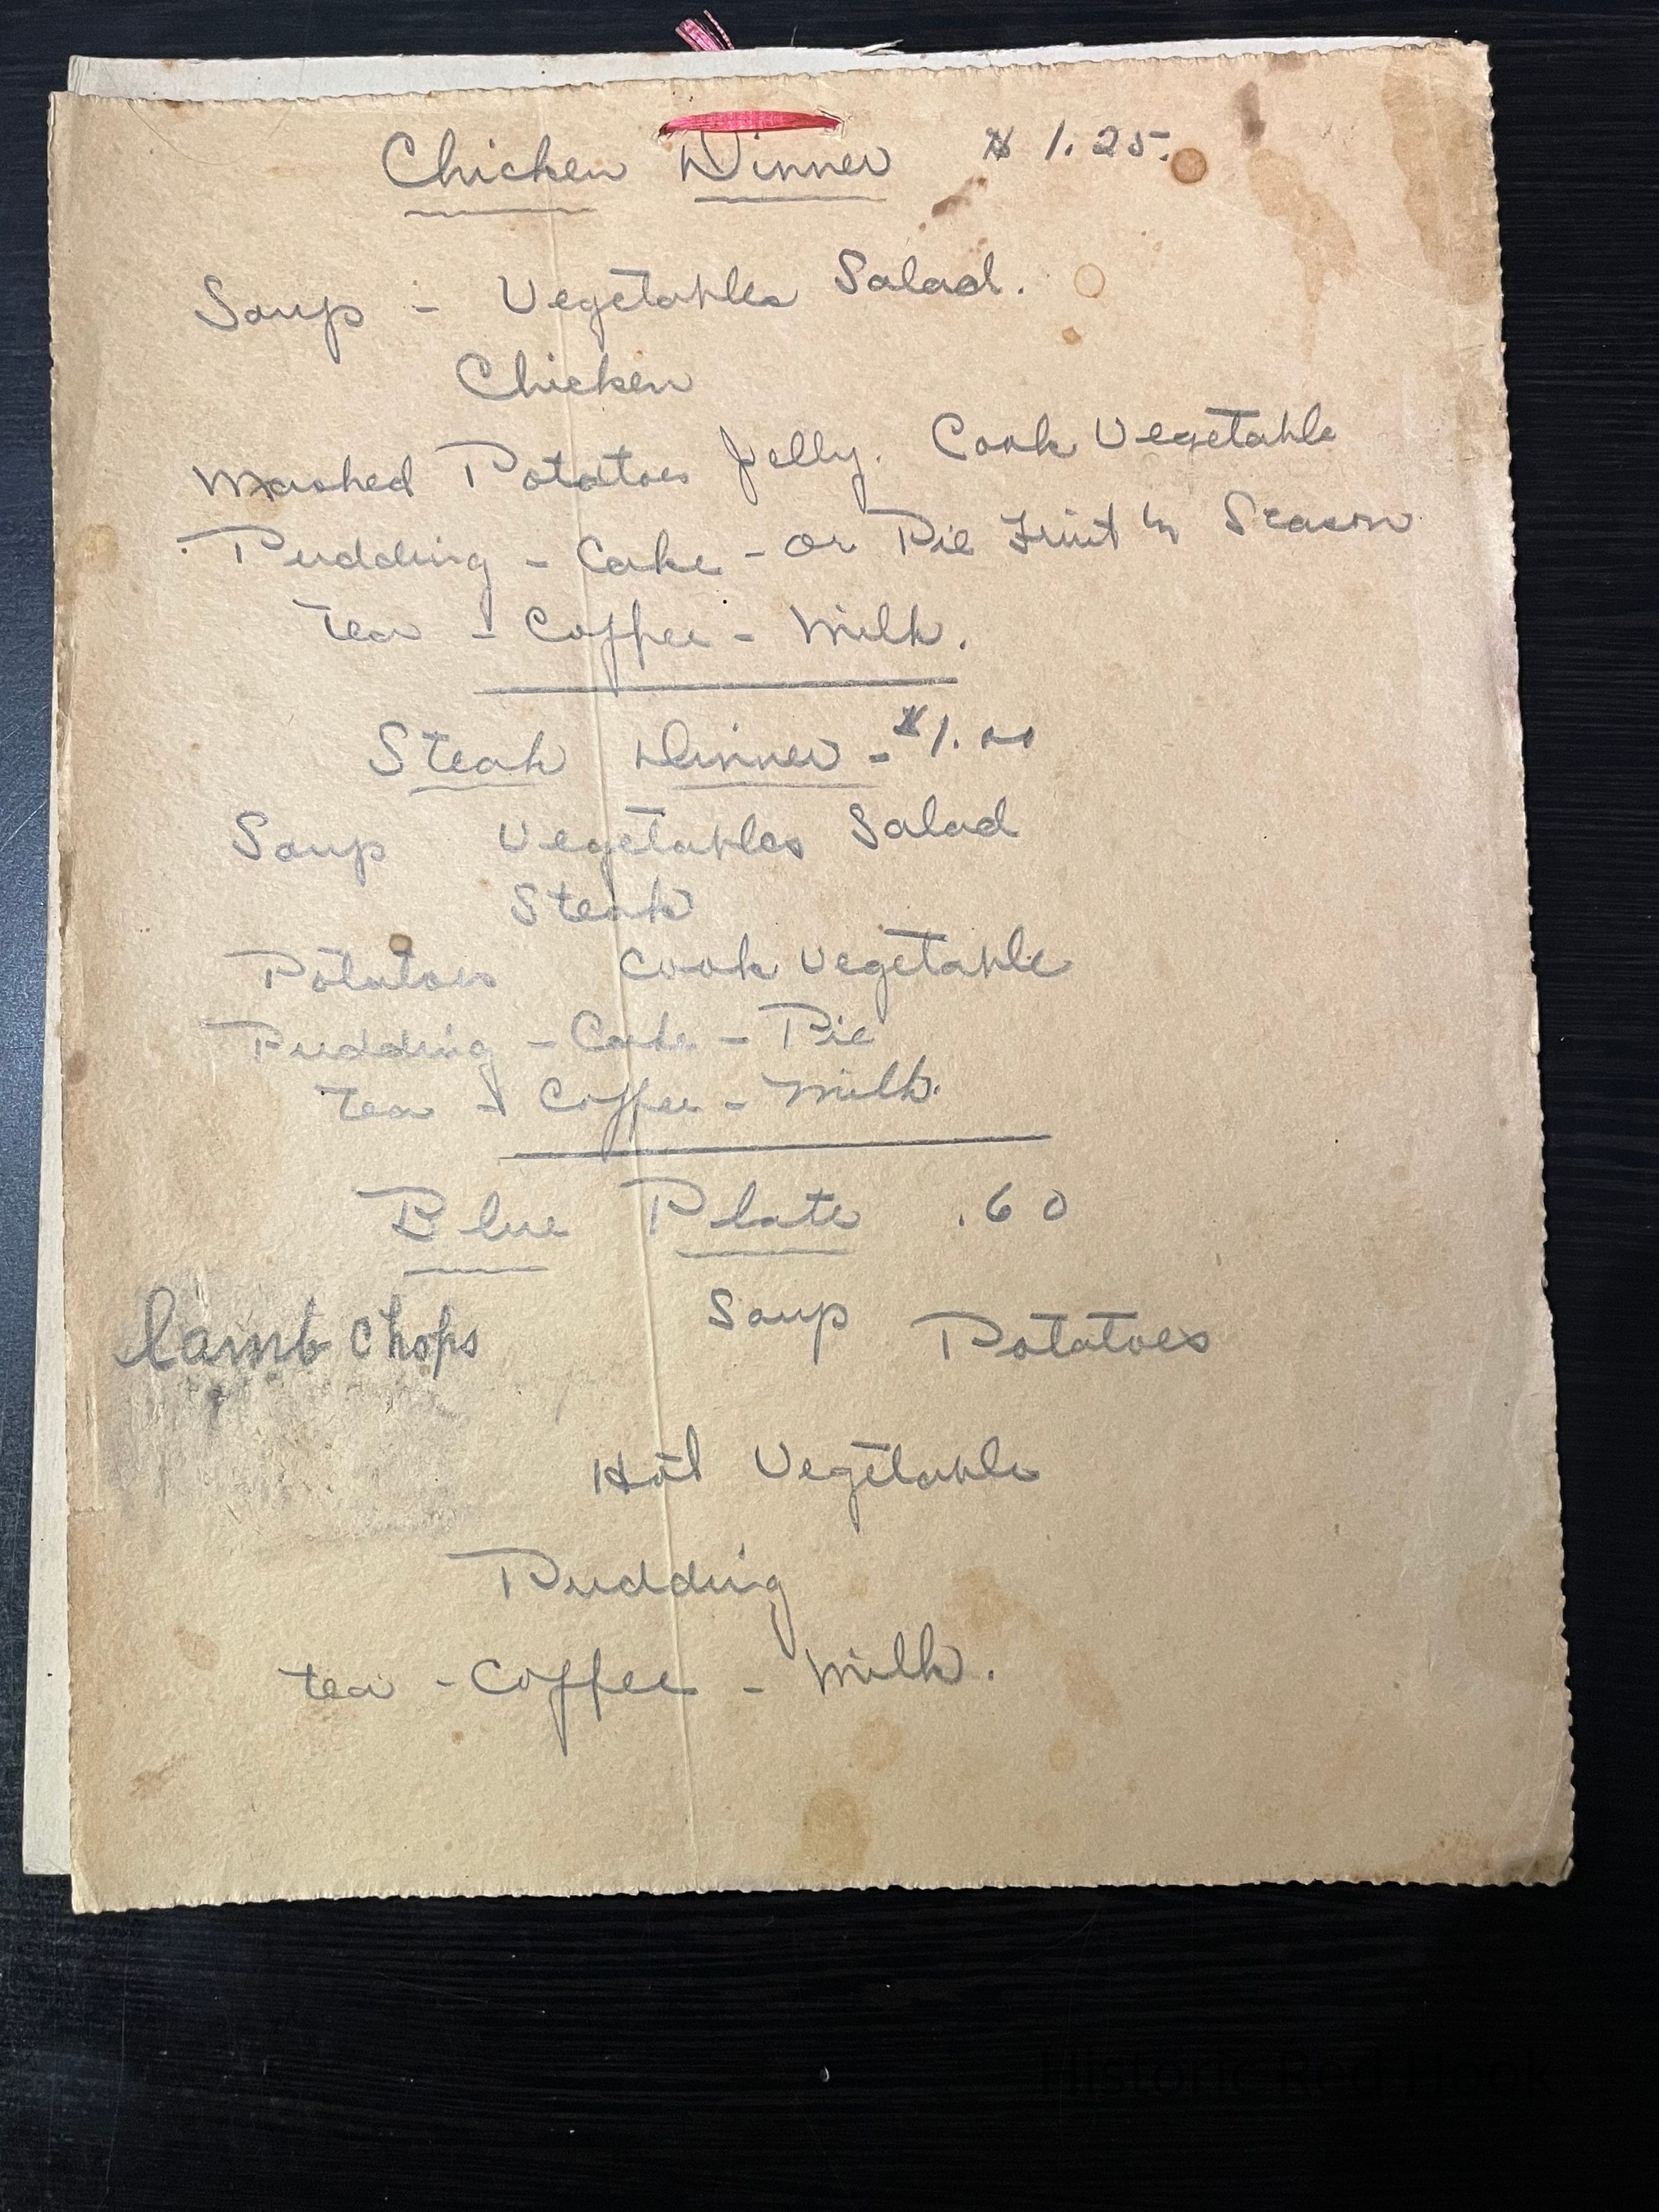 Chicken Dinner $1.25.
Soup - Vegetables Salad.
Chicken
Mashed Potatoes Jelly. Cook Vegetable
Pudding - Cake - or Pie Fruit in Season
Tea - Coffee - Milk.
Steak Dinner - $1.00
Soup Vegetables Salad
Steak
Potatoes Cook Vegetable
Pudding - Cake - Pie
Tea - Coffee - Milk.
Blue Plate .60
Lamb Chops Soup Potatoes
Hot Vegetable
Pudding
tea - Coffee - Milk.
Historic Red Hook